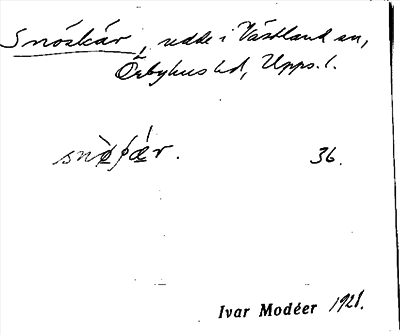 Snöskär, udde i Västland sn,
Örbyhus hd, Upps. l.
36.
Ivar Modéer 1921.